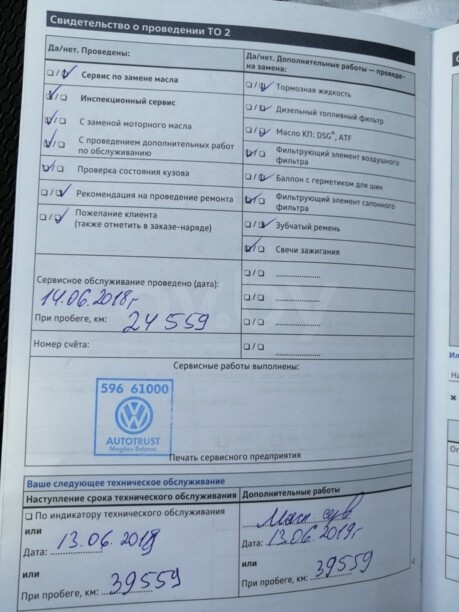 Свидетельство о проведении ТО 2
Да/нет. Проведены:
☐/☑ Сервис по замене масла
☑/☐ Инспекционный сервис
☑/☐ С заменой моторного масла
☑/☐ С проведением дополнительных работ
по обслуживанию
☑/☐ Проверка состояния кузова
☐/☑ Рекомендация на проведение ремонта
☐/☑ Пожелание клиента
(также отметить в заказе-наряде)
Да/нет. Дополнительные работы — проведе-
на замена:
☐/☑ Тормозная жидкость
☐/☑ Дизельный топливный фильтр
☐/☑ Масло КП: DSG®, ATF
☑/☐ Фильтрующий элемент воздушного
фильтра
☐/☑ Баллон с герметиком для шин
☑/☐ Фильтрующий элемент салонного
фильтра
☐/☑ Зубчатый ремень
☑/☐ Свечи зажигания
☐/☐ ........................
☐/☐ ........................
☐/☐ ........................
☐/☐
Сервисное обслуживание проведено (дата):
14.06.2018г
При пробеге, км: 24559
Номер счёта:
Сервисные работы выполнены:
596 61000
AUTOTRUST
Mogilev Belarus
Печать сервисного предприятия
Ваше следующее техническое обслуживание
Наступление срока технического обслуживания
☐ По индикатору технического обслуживания
или
Дата: 13.06.2019
или
При пробеге, км: 39559
Дополнительные работы
Дата: 13.06.2019г
или
При пробеге, км: 39559